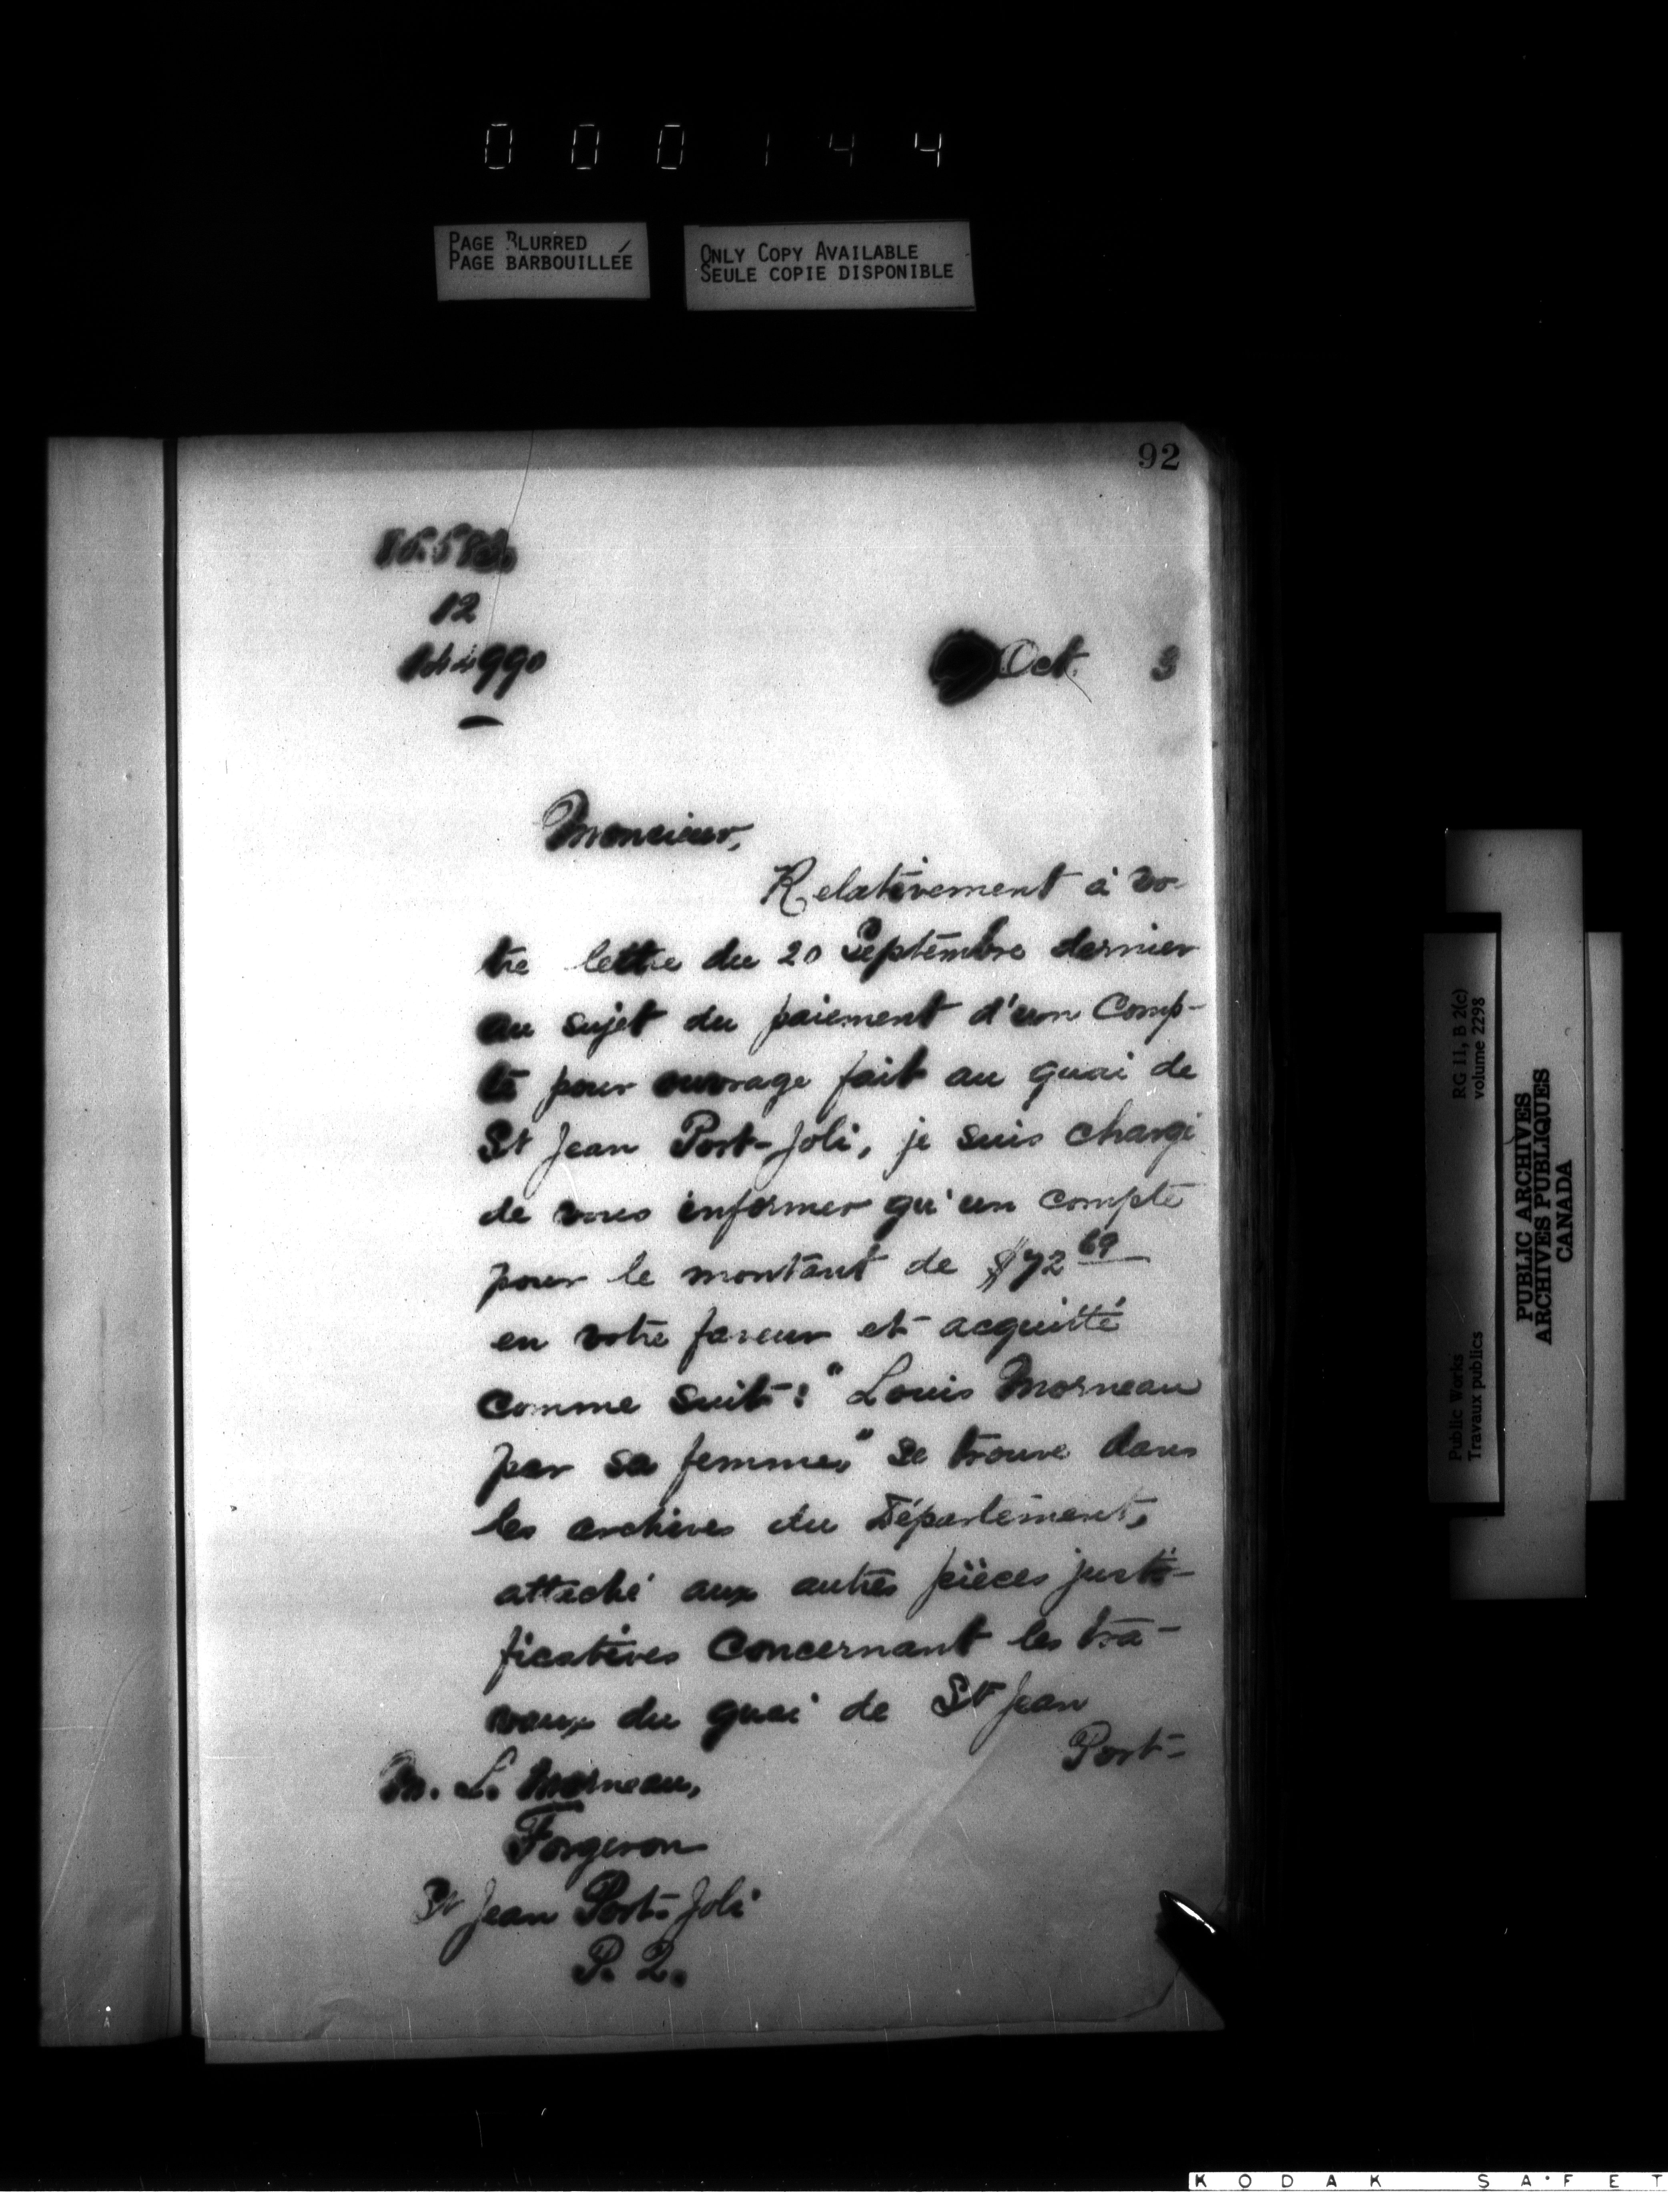 000144
PAGE BLURRED
PAGE BARBOUILLÉE
ONLY COPY AVAILABLE
SEULE COPIE DISPONIBLE
92
12
Oct. 3
Monsieur,
Relativement à vo-
tre lettre du 20 Septembre dernier
au sujet du paiement d'un Comp-
te pour ouvrage fait au quai de
St Jean Port-Joli, je suis chargé
de vous informer qu'un compte
pour le montant de $72 69
en votre faveur et acquitté
comme suit: "Louis Morneau
par sa femme," se trouve dans
les archives du Département,
attaché aux autres pièces justi-
ficatives concernant les tra-
vaux du quai de St Jean
Port-
M. L. Morneau,
Forgeron
St Jean Port-Joli
P. Q.
RG 11, B 2(c)
volume 2298
Public Works
Travaux publics
PUBLIC ARCHIVES
ARCHIVES PUBLIQUES
CANADA
KODAK SA·FET